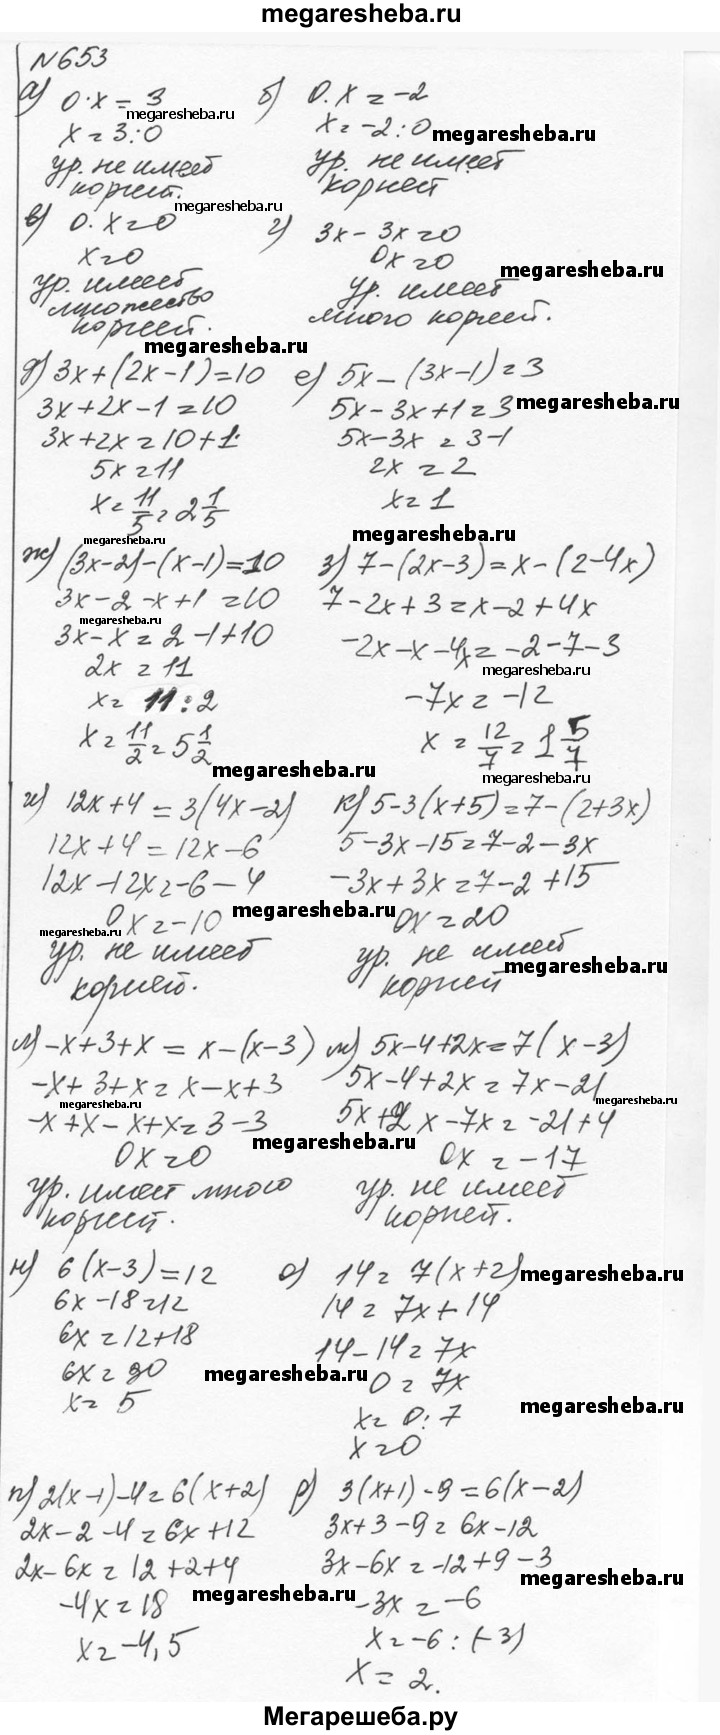 megaresheba.ru
N653
а) 0·x = 3
x = 3:0
ур. не имеет
корней.
б) 0·x = -2
x = -2:0
ур. не имеет
корней
в) 0·x = 0
x = 0
ур. имеет
множество
корней.
г) 3x - 3x = 0
0x = 0
ур. имеет
много корней.
д) 3x + (2x - 1) = 10
3x + 2x - 1 = 10
3x + 2x = 10 + 1
5x = 11
x = 11/5 = 2 1/5
е) 5x - (3x - 1) = 3
5x - 3x + 1 = 3
5x - 3x = 3 - 1
2x = 2
x = 1
ж) (3x - 2) - (x - 1) = 10
3x - 2 - x + 1 = 10
3x - x = 2 - 1 + 10
2x = 11
x = 11 : 2
x = 11/2 = 5 1/2
з) 7 - (2x - 3) = x - (2 - 4x)
7 - 2x + 3 = x - 2 + 4x
-2x - x - 4x = -2 - 7 - 3
-7x = -12
x = 12/7 = 1 5/7
и) 12x + 4 = 3(4x - 2)
12x + 4 = 12x - 6
12x - 12x = -6 - 4
0x = -10
ур. не имеет
корней.
к) 5 - 3(x + 5) = 7 - (2 + 3x)
5 - 3x - 15 = 7 - 2 - 3x
-3x + 3x = 7 - 2 + 15
0x = 20
ур. не имеет
корней
л) -x + 3 + x = x - (x - 3)
-x + 3 + x = x - x + 3
-x + x - x + x = 3 - 3
0x = 0
ур. имеет много
корней.
м) 5x - 4 + 2x = 7(x - 3)
5x - 4 + 2x = 7x - 21
5x + 2x - 7x = -21 + 4
0x = -17
ур. не имеет
корней.
н) 6(x - 3) = 12
6x - 18 = 12
6x = 12 + 18
6x = 30
x = 5
о) 14 = 7(x + 2)
14 = 7x + 14
14 - 14 = 7x
0 = 7x
x = 0 : 7
x = 0
п) 2(x - 1) - 4 = 6(x + 2)
2x - 2 - 4 = 6x + 12
2x - 6x = 12 + 2 + 4
-4x = 18
x = -4,5
р) 3(x + 1) - 9 = 6(x - 2)
3x + 3 - 9 = 6x - 12
3x - 6x = -12 + 9 - 3
-3x = -6
x = -6 : (-3)
x = 2.
Мегарешеба.ру